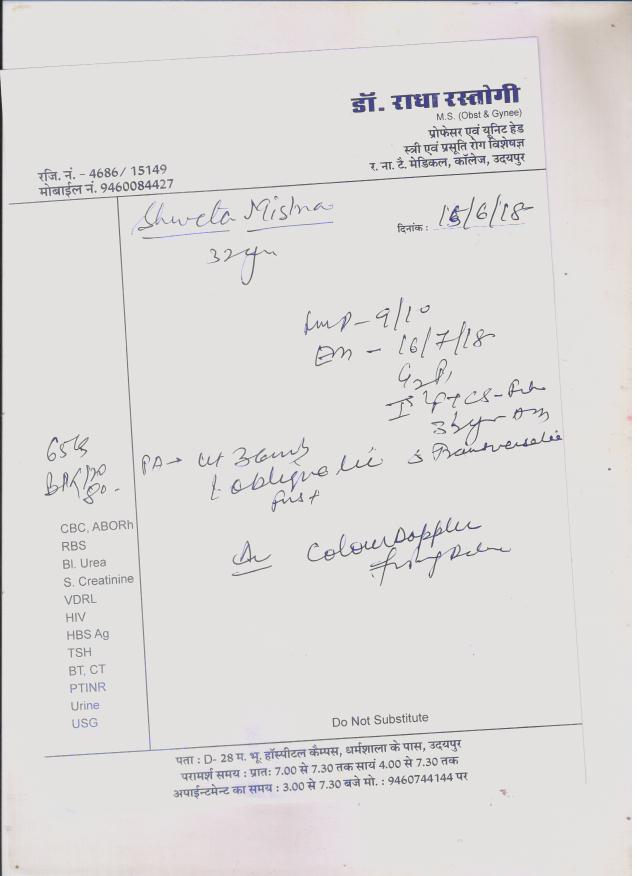 डॉ. राधा रस्तोगी
M.S. (Obst & Gynee)
प्रोफेसर एवं यूनिट हेड
स्त्री एवं प्रसूति रोग विशेषज्ञ
र. ना. टै. मेडिकल, कॉलेज, उदयपुर
रजि. नं. - 4686/ 15149
मोबाईल नं. 9460084427
Shweta Mishra
दिनांक : 15/6/18
32yr
Lmp - 9/10
- 16/7/18
G2P1
65
PA →
oblique lie
CBC, ABORh
RBS
Bl. Urea
S. Creatinine
VDRL
HIV
HBS Ag
TSH
BT, CT
PTINR
Urine
USG
Colour Doppler
Do Not Substitute
पता : D- 28 म. भू. हॉस्पीटल कैम्पस, धर्मशाला के पास, उदयपुर
परामर्श समय : प्रातः 7.00 से 7.30 तक सायं 4.00 से 7.30 तक
अपाईन्टमेन्ट का समय : 3.00 से 7.30 बजे मो. : 9460744144 पर